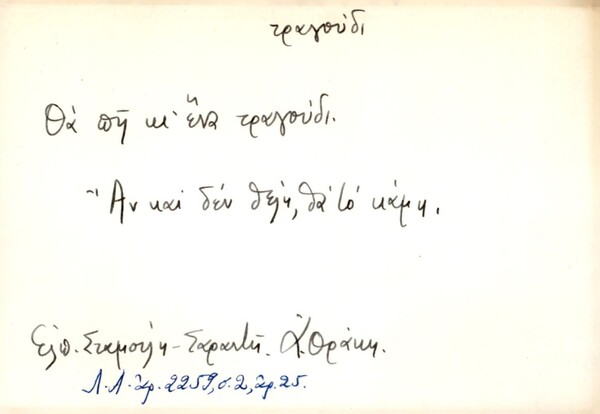 τραγούδι
Θά πῇ κι' ἕνα τραγούδι.
Ἄν καί δέν θέλη, θά τό κάμη.
Ἐλπ. Σταμούλη-Σαραντῆ. Ἀ. Θράκη.
Λ.Α. ἀρ. 2259, σ. 2, ἀρ. 25.